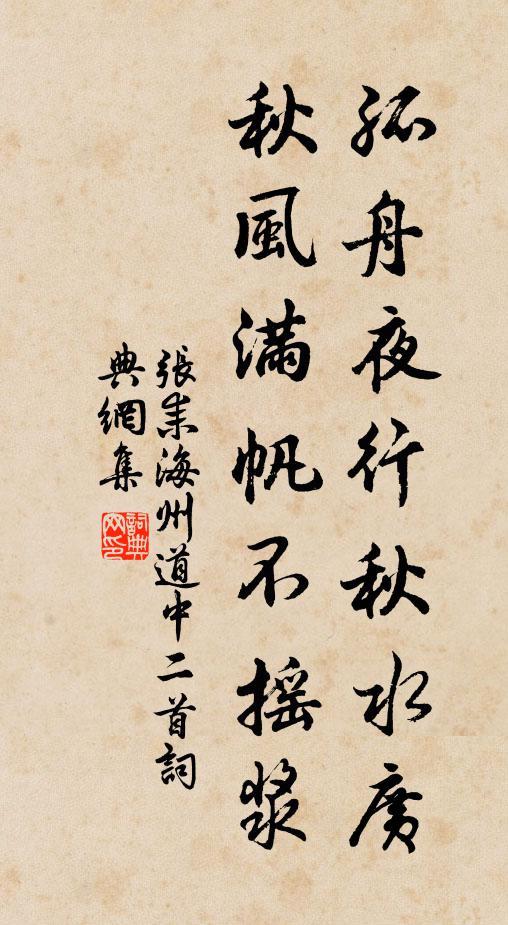 孤舟夜行秋水廣
秋風滿帆不摇漿
張耒海州道中二首詞
典網集
詞典網印